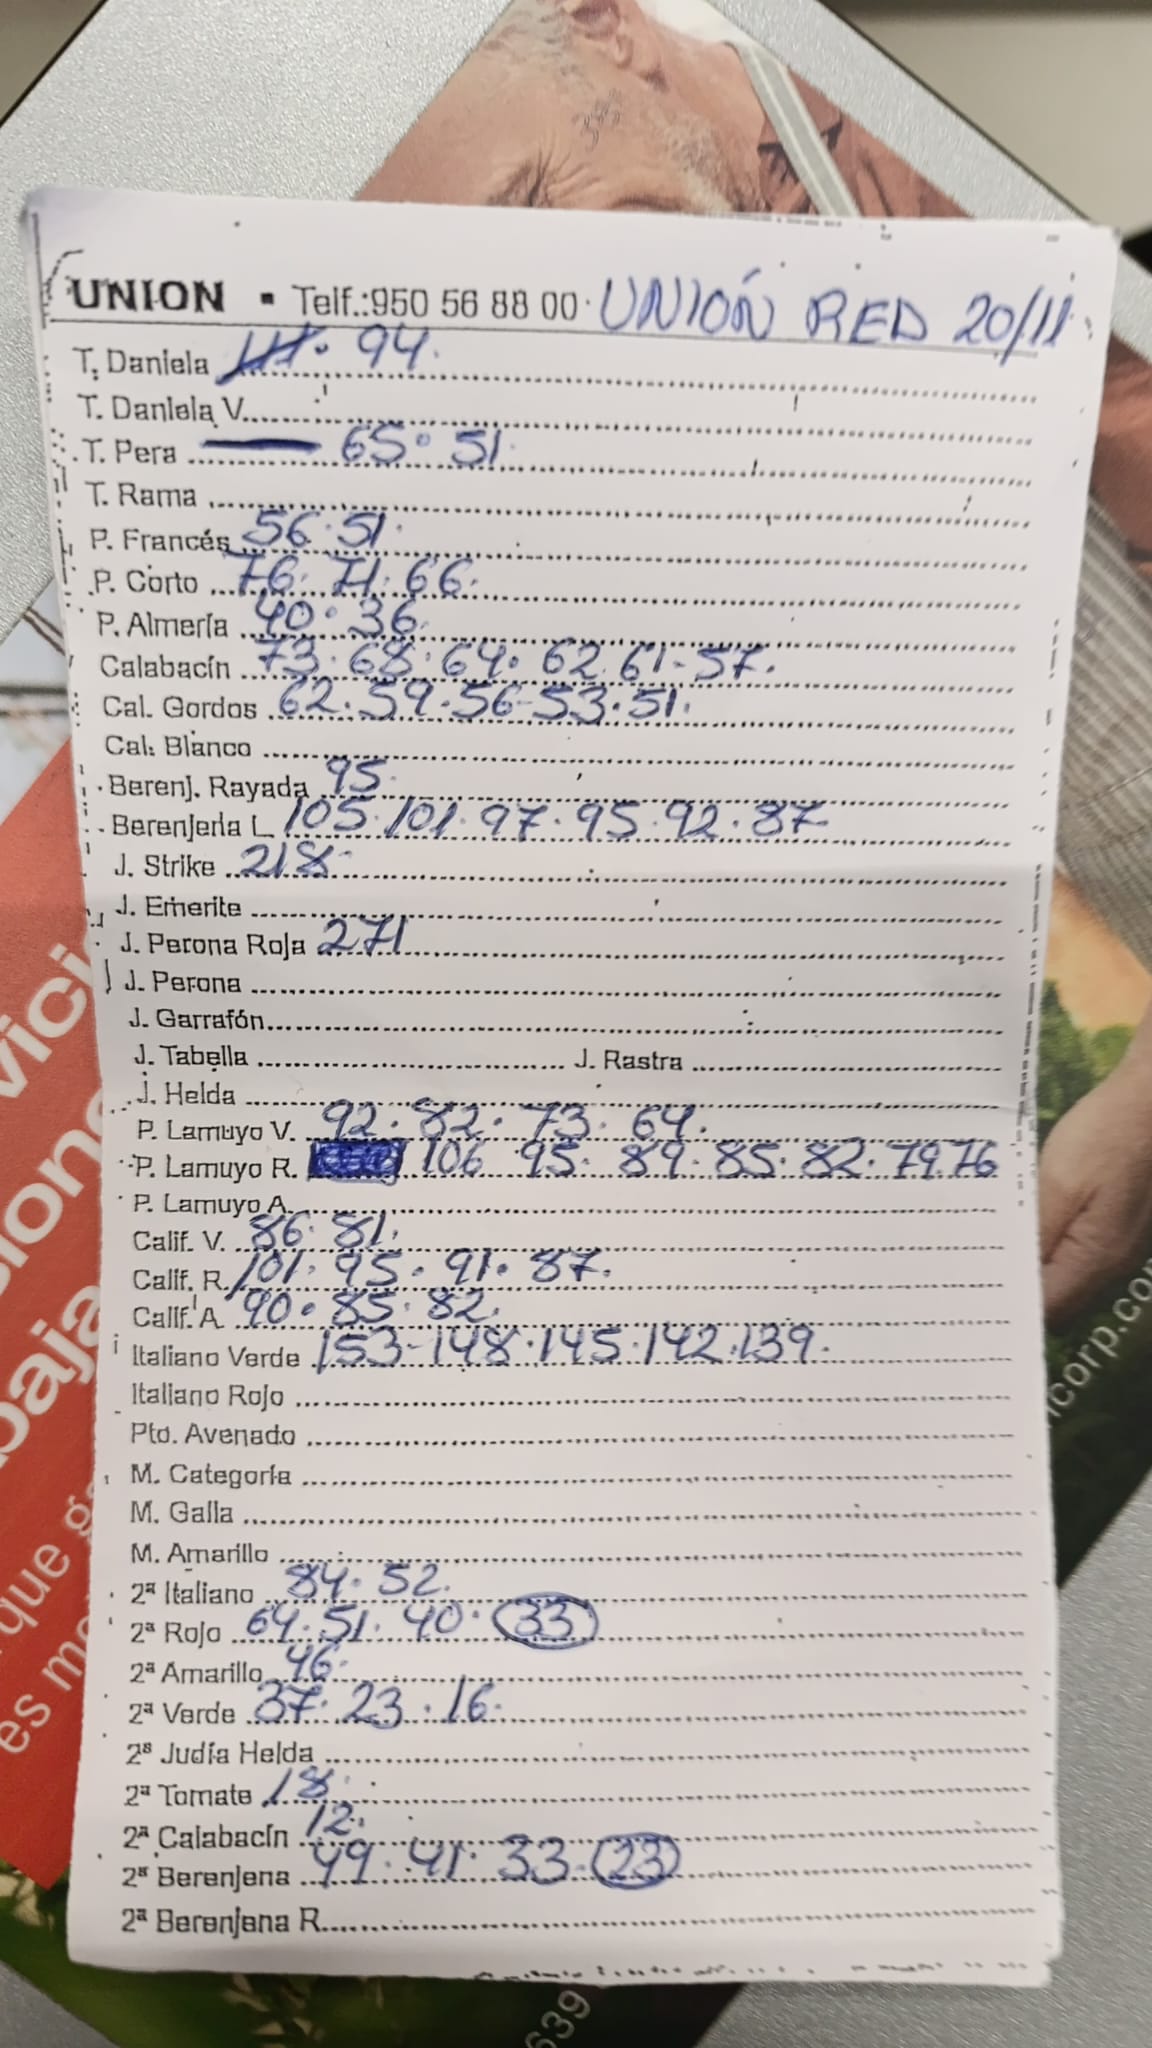 UNION ▪ Telf.:950 56 88 00 · UNIÓN RED 20/11
T. Daniela 94.
T. Daniela V.
T. Pera 65 · 51
T. Rama
P. Francés 56 · 51.
P. Corto 76 · 71 · 66.
P. Almería 40 · 36.
Calabacín 73 · 68 · 64 · 62 61 - 57.
Cal. Gordos 62 · 59 - 56 - 53 · 51.
Cal. Blanco
Berenj. Rayada 95.
Berenjena L 105 · 101 · 97 · 95 · 92 · 87
J. Strike 218
J. Emerite
J. Perona Roja 271
J. Perona
J. Garrafón
J. Tabella J. Rastra
J. Helda
P. Lamuyo V. 92 · 82 · 73 · 64.
P. Lamuyo R. 106 95 · 89 · 85 · 82 · 79.76
P. Lamuyo A.
Calif. V. 86 · 81.
Calif. R. 101 · 95 · 91 · 87.
Calif. A 90 · 85 · 82.
Italiano Verde 153 - 148 · 145 · 142 · 139.
Italiano Rojo
Pto. Avenado
M. Categoría
M. Galia
M. Amarillo
2ª Italiano 84 · 52.
2ª Rojo 64 · 51 · 40 · 33
2ª Amarillo 46.
2ª Verde 37 · 23 · 16.
2ª Judía Helda
2ª Tomate 18.
2ª Calabacín 12.
2ª Berenjena 49 · 41 · 33 · 23
2ª Berenjena R.
vici
siones
baja
que ga
es m
ncorp.co
639